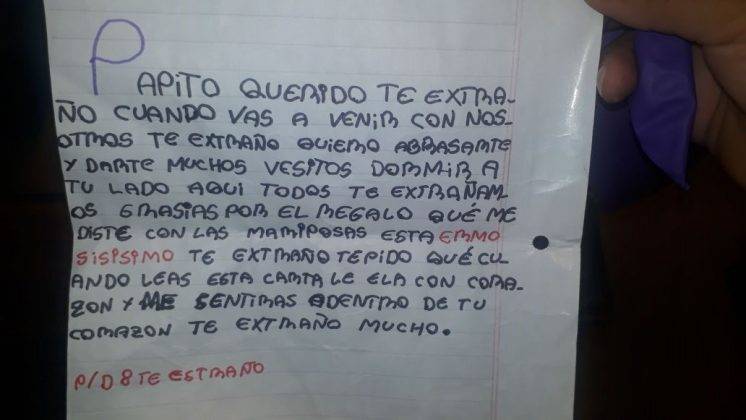 PAPITO QUERIDO TE EXTRA-
ÑO CUANDO VAS A VENIR CON NOS-
OTROS TE EXTRAÑO QUIERO ABRASARTE
Y DARTE MUCHOS VESITOS DORMIR A
TU LADO AQUI TODOS TE EXTRAÑAM
OS GRASIAS POR EL REGALO QUÉ ME
DISTE CON LAS MARIPOSAS ESTA ERMO
SISISIMO TE EXTRAÑO TEPIDO QUÉ CU
ANDO LEAS ESTA CARTA LE ELA CON CORA-
ZON Y ME SENTIRAS ADENTRO DE TU
CORAZON TE EXTRAÑO MUCHO.
P/D 8 TE ESTRAÑO